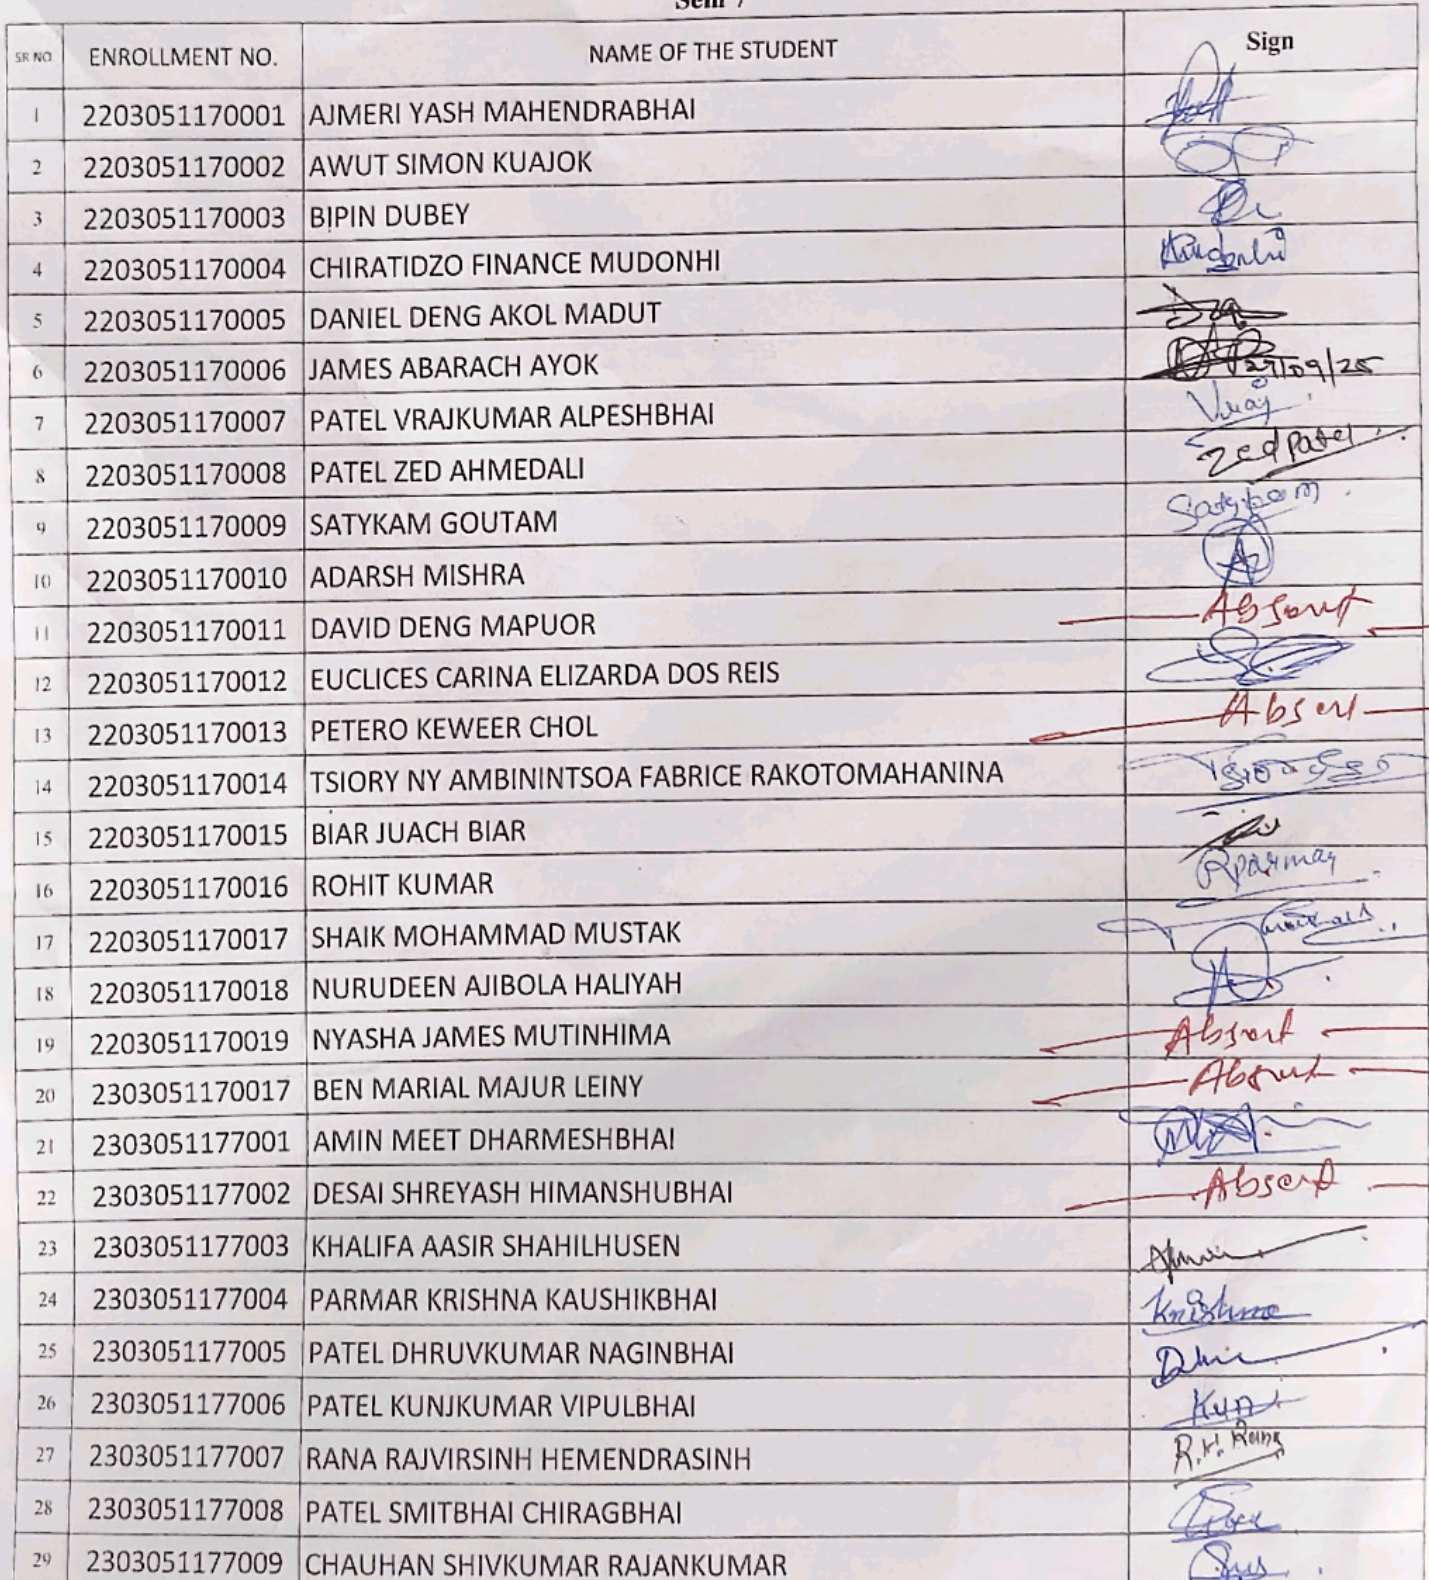 Sem 7
SR NO. ENROLLMENT NO. NAME OF THE STUDENT Sign
1 2203051170001 AJMERI YASH MAHENDRABHAI
2 2203051170002 AWUT SIMON KUAJOK
3 2203051170003 BIPIN DUBEY
4 2203051170004 CHIRATIDZO FINANCE MUDONHI Mudonhi
5 2203051170005 DANIEL DENG AKOL MADUT
6 2203051170006 JAMES ABARACH AYOK 27/09/25
7 2203051170007 PATEL VRAJKUMAR ALPESHBHAI Vraj
8 2203051170008 PATEL ZED AHMEDALI Zed Patel
9 2203051170009 SATYKAM GOUTAM Satykam
10 2203051170010 ADARSH MISHRA
11 2203051170011 DAVID DENG MAPUOR Absent
12 2203051170012 EUCLICES CARINA ELIZARDA DOS REIS
13 2203051170013 PETERO KEWEER CHOL Absent
14 2203051170014 TSIORY NY AMBININTSOA FABRICE RAKOTOMAHANINA
15 2203051170015 BIAR JUACH BIAR
16 2203051170016 ROHIT KUMAR Rparmar
17 2203051170017 SHAIK MOHAMMAD MUSTAK
18 2203051170018 NURUDEEN AJIBOLA HALIYAH
19 2203051170019 NYASHA JAMES MUTINHIMA Absent
20 2303051170017 BEN MARIAL MAJUR LEINY Absent
21 2303051177001 AMIN MEET DHARMESHBHAI
22 2303051177002 DESAI SHREYASH HIMANSHUBHAI Absent
23 2303051177003 KHALIFA AASIR SHAHILHUSEN
24 2303051177004 PARMAR KRISHNA KAUSHIKBHAI Krishna
25 2303051177005 PATEL DHRUVKUMAR NAGINBHAI
26 2303051177006 PATEL KUNJKUMAR VIPULBHAI
27 2303051177007 RANA RAJVIRSINH HEMENDRASINH R.H. Rana
28 2303051177008 PATEL SMITBHAI CHIRAGBHAI
29 2303051177009 CHAUHAN SHIVKUMAR RAJANKUMAR